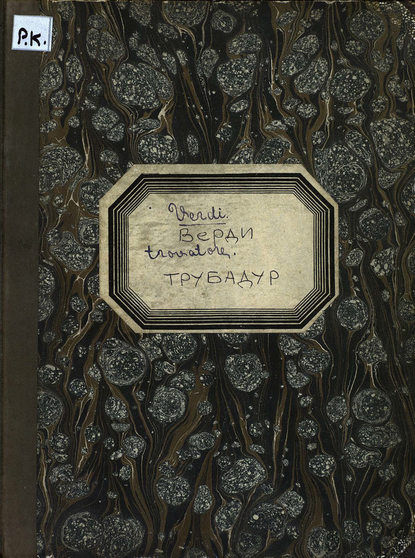 Р.К.
Verdi.
ВЕРДИ
trovatore.
ТРУБАДУР